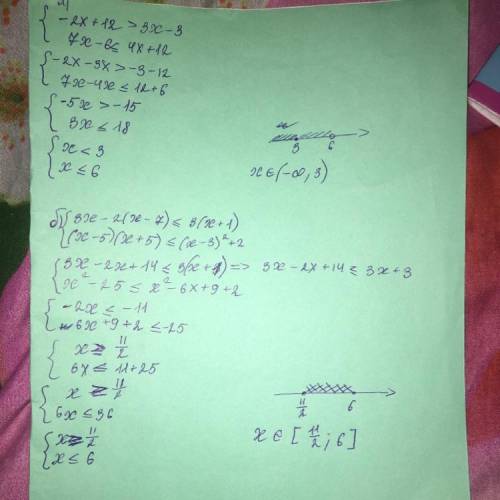 -2x+12 > 3x-3
7x-6 ≤ 4x+12
-2x-3x > -3-12
7x-4x ≤ 12+6
-5x > -15
3x ≤ 18
x < 3
x ≤ 6
3 6
x∈(-∞; 3)
б) 3x-2(x-7) ≤ 3(x+1)
(x-5)(x+5) ≤ (x-3)²+2
3x-2x+14 ≤ 3(x+1) => 3x-2x+14 ≤ 3x+3
x²-25 ≤ x²-6x+9+2
-2x ≤ -11
6x+9+2 ≤ -25
x ≥ 11/2
6x ≤ 11+25
x ≥ 11/2
6x ≤ 36
x ≥ 11/2
x ≤ 6
11/2 6
x∈[11/2; 6]